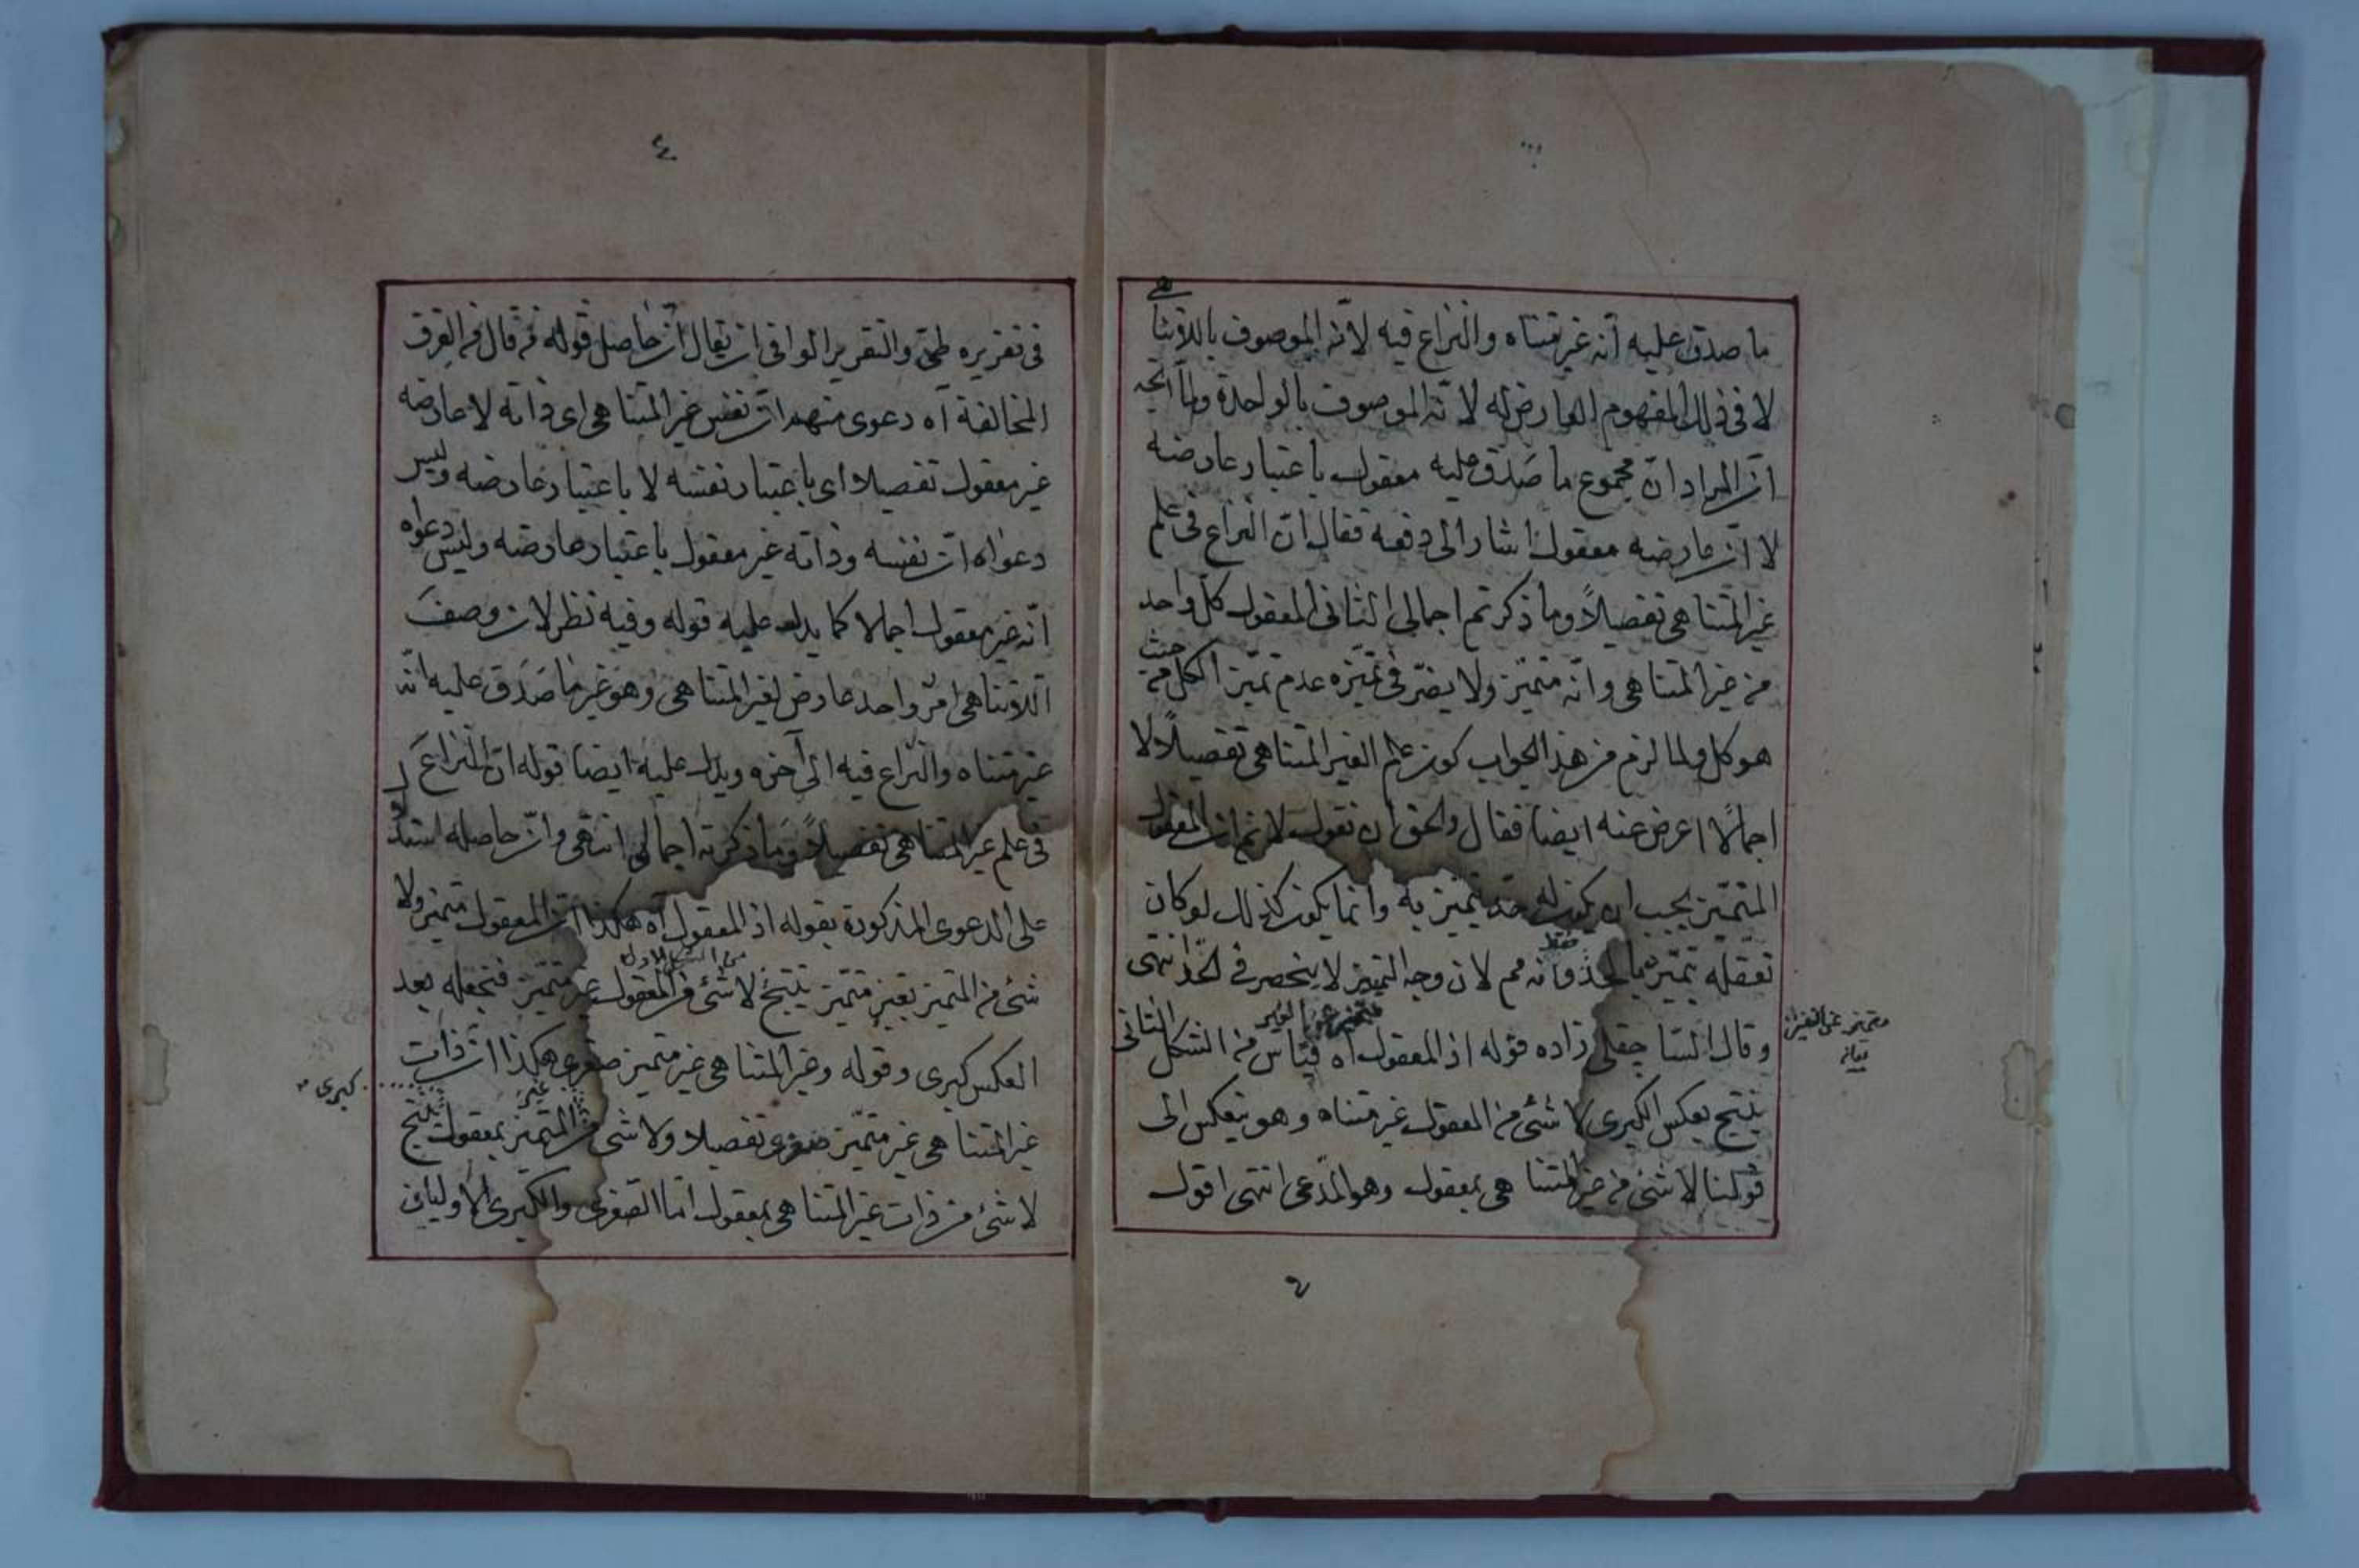 ما صدق عليه انه غير متناه والنزاع فيه لانه الموصوف باللاتناهى
لا فى ذلك المفهوم العارض له لانه الموصوف بالوحدة ولما اتجه
ان المراد ان مجموع ما صدق عليه معقول باعتبار عارضه
لا ان عارضه معقول اشار الى دفعه فقال ان النزاع فى علم
غير المتناهى تفصيلاً وما ذكرتم اجمالى الثانى المعقول كل واحد
من غير المتناهى وانه متميز ولا يضر فى تميزه عدم تميز الكل من حيث
هو كل ولما لزم من هذا الجواب كون علم الغير المتناهى تفصيلاً لا
اجمالاً اعرض عنه ايضا فقال والحق ان نقول لا نم ان المعقول
المتميز يجب ان يكون له حد يتميز به وانما يكون كذلك لو كان
تعقله بتميزه بالحد فقط وانه مم لان وجه التميز لا ينحصر فى الحد انتهى
وقال الساجقلى زاده قوله اذ المعقول اه قياس من الشكل الثانى
متميز عن الغير
ينتج بعكس الكبرى لا شئ من المعقول غير متناه وهو ينعكس الى
قولنا لا شئ من غير المتناهى بمعقول وهو المدعى انتهى اقول
٤
فى تقريره طى والتقرير الوافى ان يقال ان حاصل قوله من قال من الفرق
المخالفة اه دعوى منهم ان نفس غير المتناهى اى ذاته لا عارضه
غير معقول تفصيلا اى باعتبار نفسه لا باعتبار عارضه وليس
دعواه ان نفسه وذاته غير معقول باعتبار عارضه وليس دعواه
انه غير معقول اجمالا كما يدل عليه قوله وفيه نظر لان وصف
اللاتناهى امر واحد عارض لغير المتناهى وهو غير ما صدق عليه انه
غير متناه والنزاع فيه الى آخره ويدل عليه ايضا قوله ان النزاع
فى علم غير المتناهى تفصيلاً وما ذكرته اجمالى انتهى وان حاصله استدل
على الدعوى المذكورة بقوله اذ المعقول اه هكذا ان المعقول متميز ولا
من الشكل الاول
شئ من المتميز بغير متميز ينتج لا شئ من المعقول غير متميز فتجعله بعد
العكس كبرى وقوله وغير المتناهى غير متميز صغرى هكذا ان ذات
كبرى
غير المتناهى غير متميز صغرى تفصيلا ولا شئ من غير المتميز بمعقول ينتج
لا شئ من ذات غير المتناهى بمعقول اما الصغرى والكبرى الاوليان